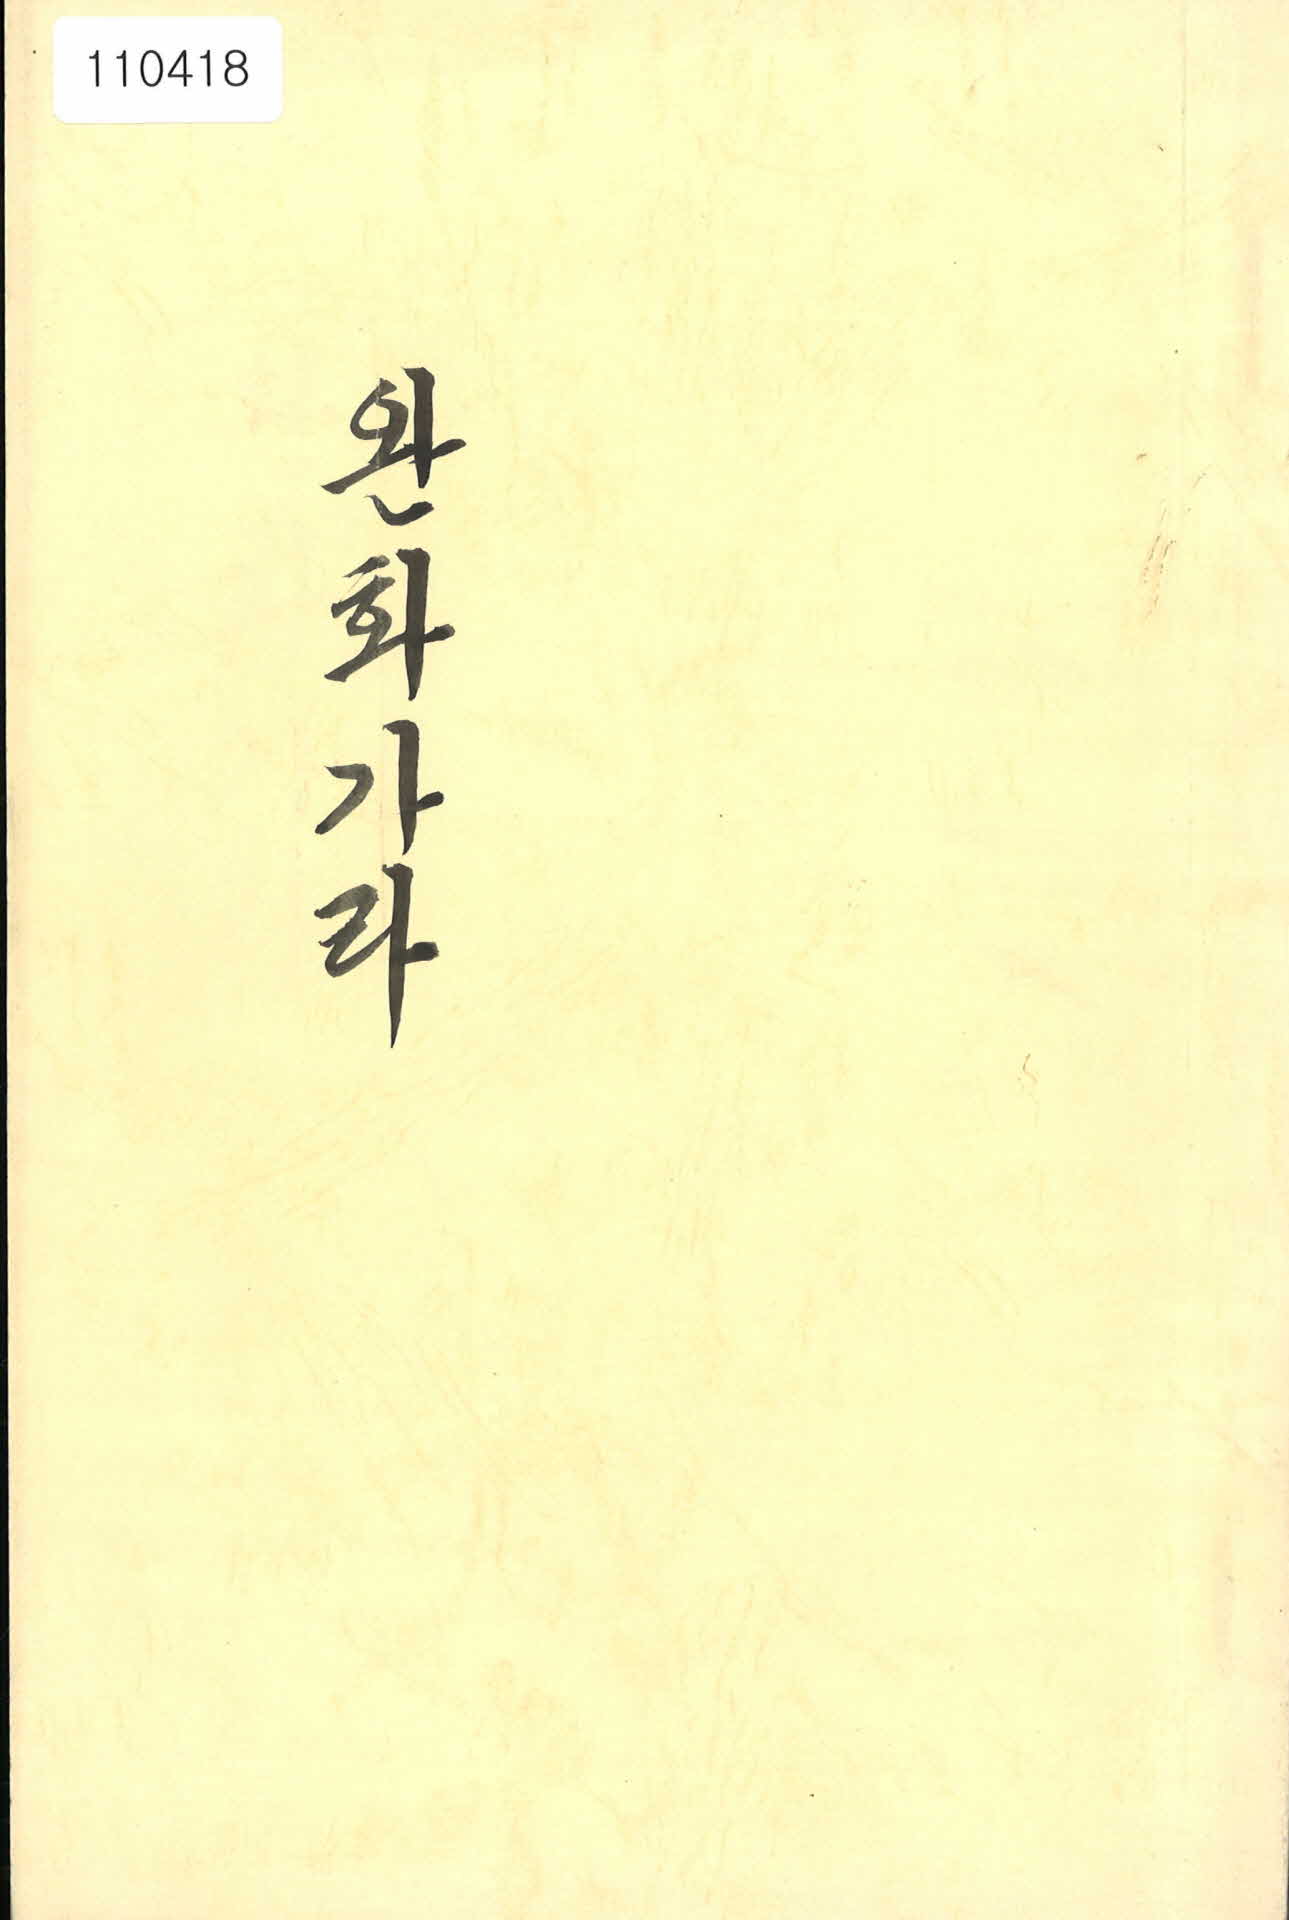 110418
완화가라